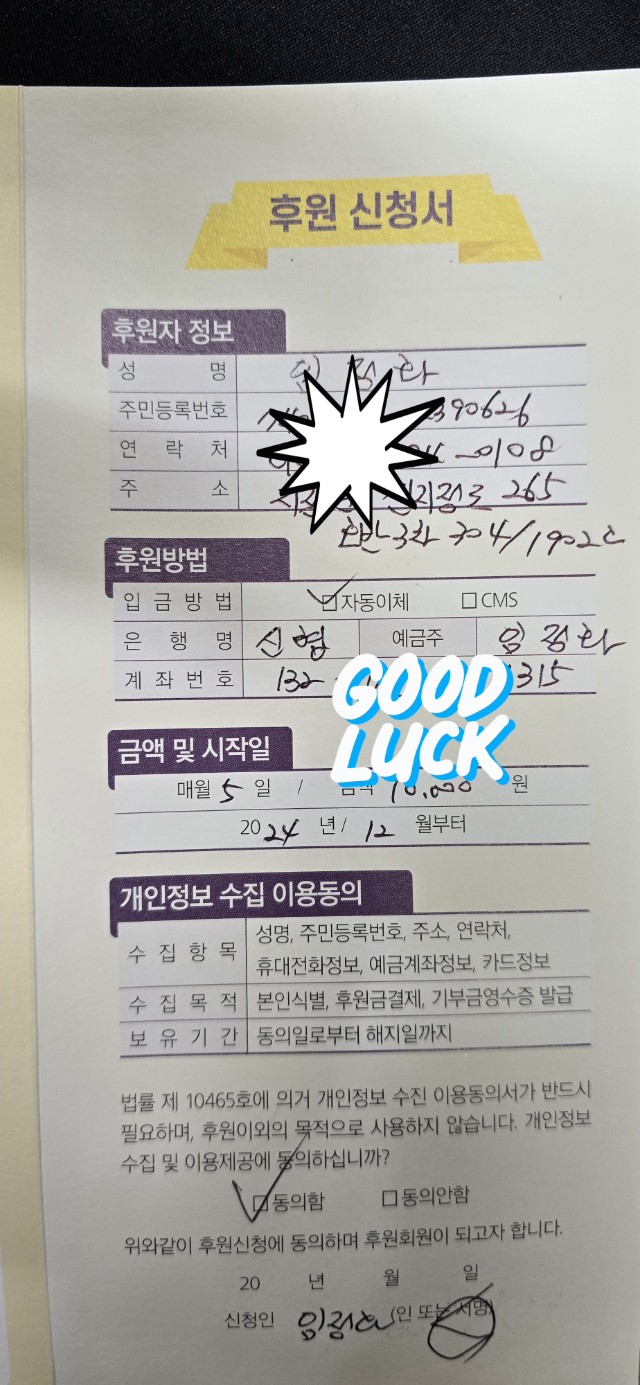 후원 신청서
후원자 정보
성 명 임 정 화
주민등록번호 390626
연 락 처 -0108
주 소 265
3차 704/1902
후원방법
입 금 방 법 ☑자동이체 □CMS
은 행 명 신협 예금주 임 정 화
계 좌 번 호 132 1315
GOOD
LUCK
금액 및 시작일
매월 5 일 / 금액 10,000 원
20 24 년 / 12 월부터
개인정보 수집 이용동의
수 집 항 목 성명, 주민등록번호, 주소, 연락처,
휴대전화정보, 예금계좌정보, 카드정보
수 집 목 적 본인식별, 후원금결제, 기부금영수증 발급
보 유 기 간 동의일로부터 해지일까지
법률 제 10465호에 의거 개인정보 수진 이용동의서가 반드시
필요하며, 후원이외의 목적으로 사용하지 않습니다. 개인정보
수집 및 이용제공에 동의하십니까?
☑동의함 □동의안함
위와같이 후원신청에 동의하며 후원회원이 되고자 합니다.
20 년 월 일
신청인 임정화 (인 또는 서명)